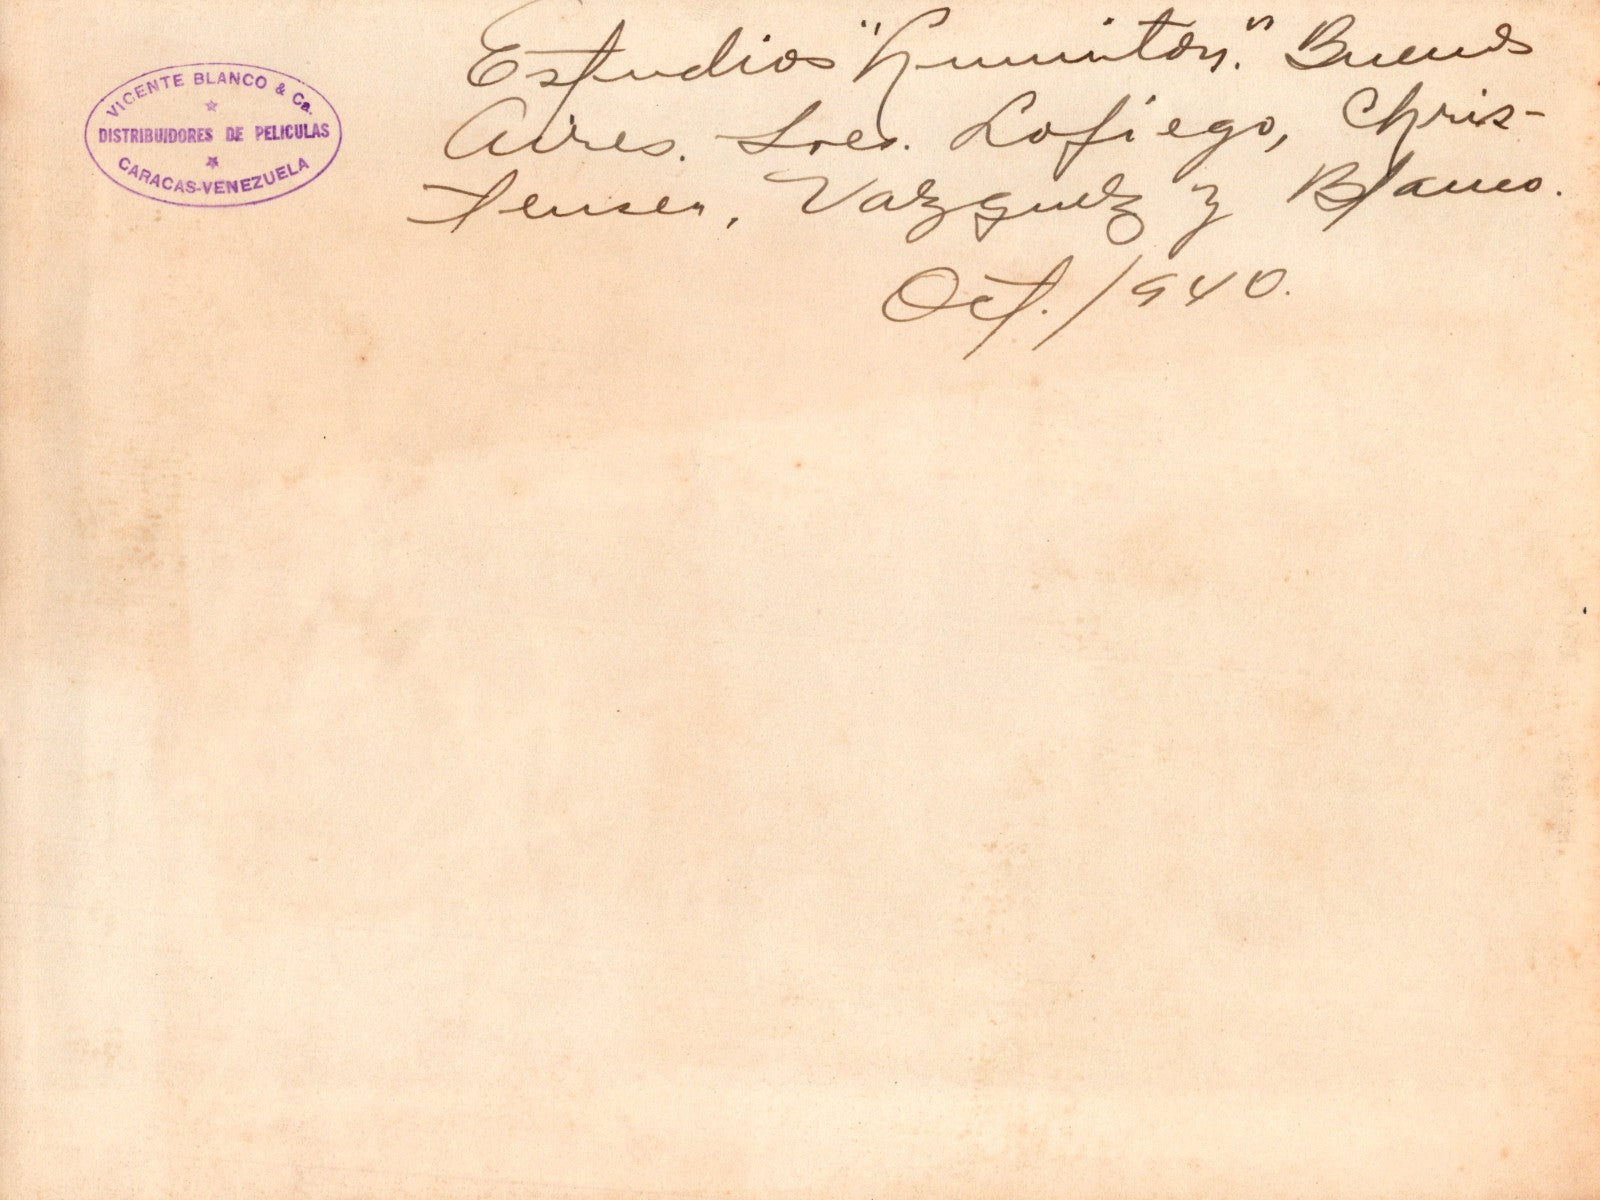 VICENTE BLANCO & Ca.
DISTRIBUIDORES DE PELICULAS
CARACAS-VENEZUELA
Estudios "Lumiton". Buenos
Aires. Sres. Lofiego, Chris-
tensen, Vazquez y Blanco.
Oct. 1940.